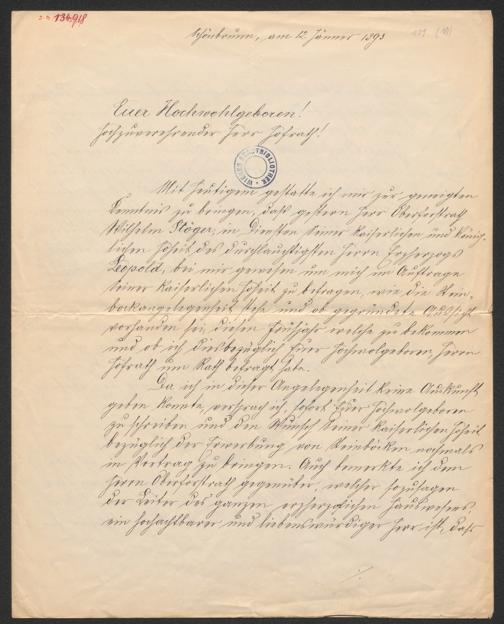 134.918
Schönbrunn, am 12 Jänner 1893
Euer Hochwohlgeboren!
Hochzuverehrender Herr Hofrath!
WIENER STADTBIBLIOTHEK
Mit Heutigem gestatte ich mir zur geneigten
Kenntnis zu bringen, dass gestern Herr Oberforstrath
Wilhelm Stöger, in Diensten Seiner Kaiserlichen und König-
lichen Hoheit des durchlauchtigsten Herrn Erzherzogs
Leopold, bei mir gewesen um mich im Auftrage
Seiner Kaiserlichen Hoheit zu befragen, wie die Stein-
bockangelegenheit stehe und ob gegründete Aussicht
vorhanden sei, dieses Frühjahr welche zu bekommen
und ob ich diesbezüglich Euer Hochwolgeboren, Herrn
Hofrath um Rath befragt habe.
Da ich in dieser Angelegenheit keine Auskunft
geben konnte, versprach ich, sofort Euer Hochwolgeboren
zu schreiben und den Wunsch Seiner Kaiserlichen Hoheit
bezüglich der Erwerbung von Steinböcken nochmals
in Vortrag zu bringen. Auch bemerkte ich dem
Herrn Oberforstrath gegenüber, welcher sozusagen
der Leiter des ganzen erzherzoglichen Hauswesens,
ein hochachtbarer und liebenswürdiger Herr ist, dass
./.